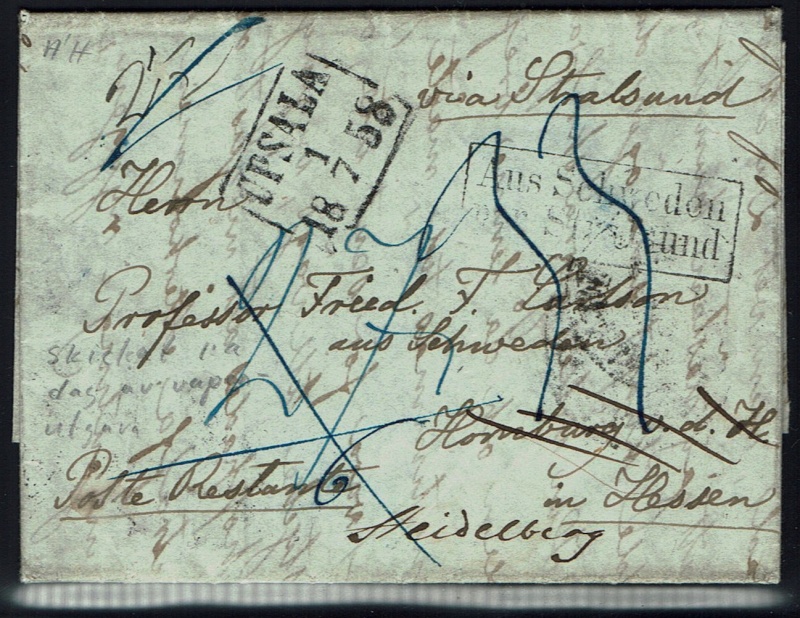 via Stralsund
UPSALA
1
18 7 58
Aus Schweden
per Stralsund
Herrn
Professor Fried. F. Carlson
aus Schweden
Homburg v. d. H.
Poste Restante
in Hessen
Heidelberg
skickat
dag av
utgåva